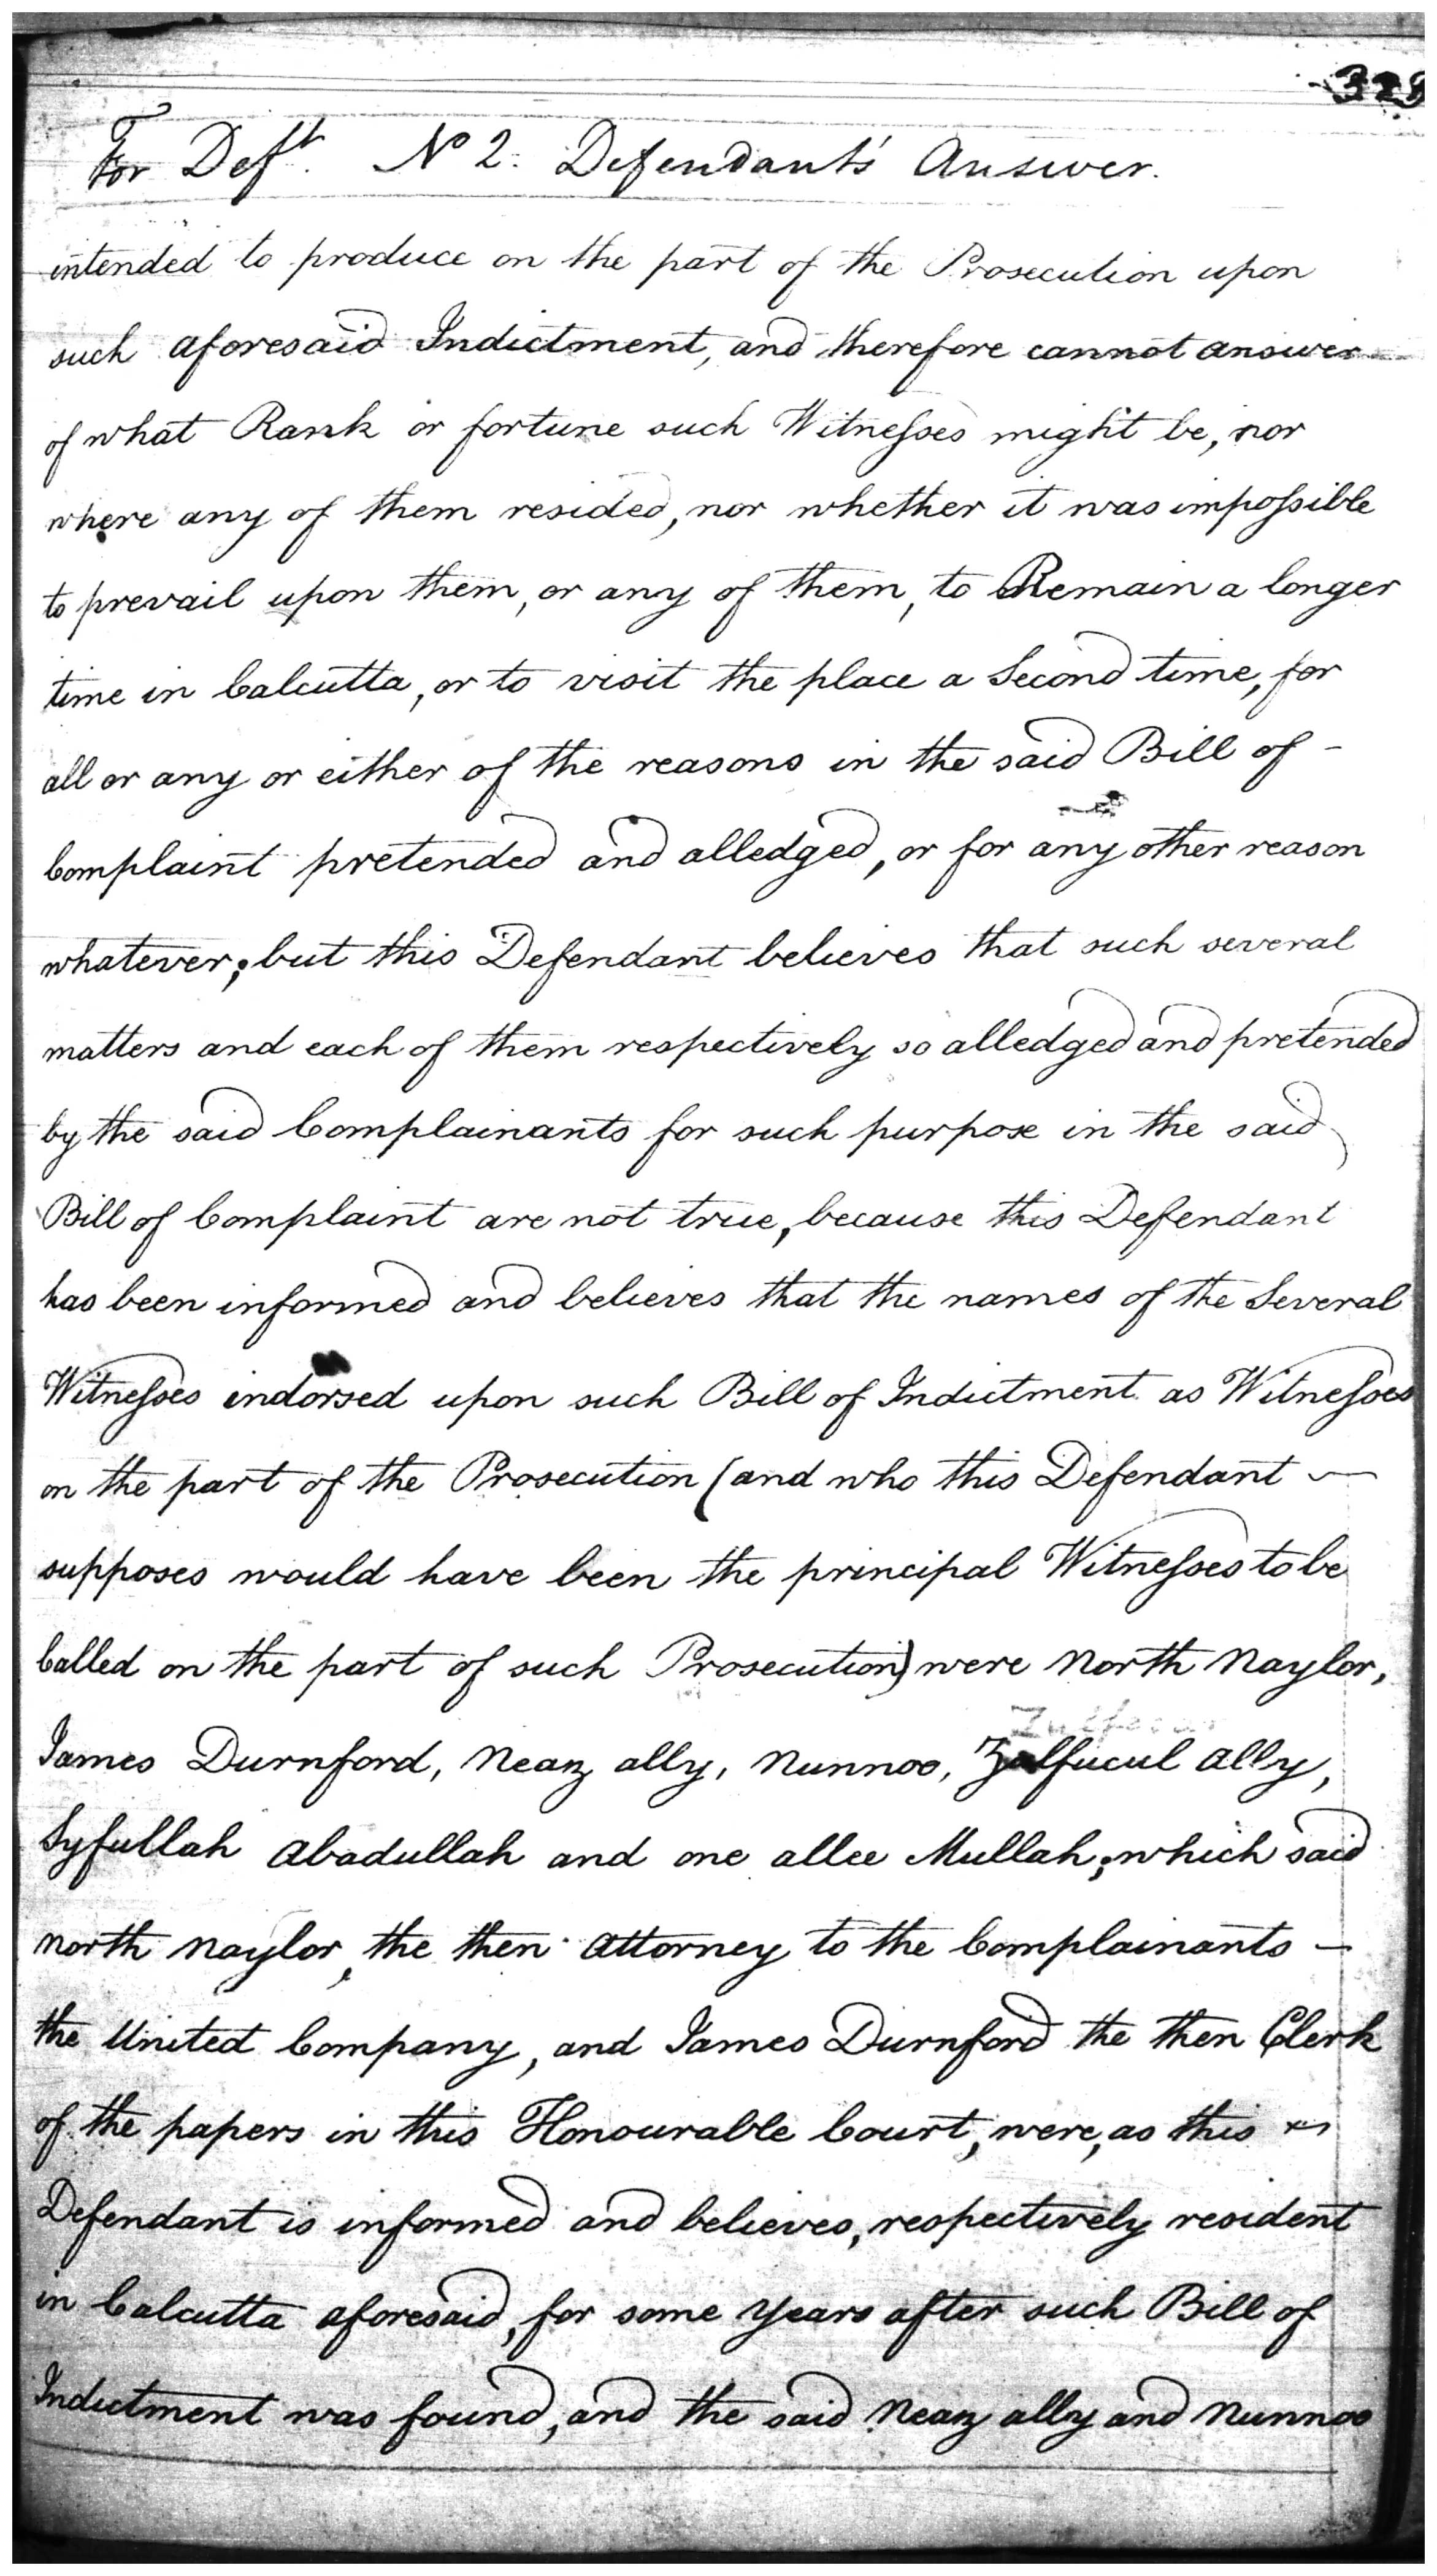 For Deft. No 2. Defendants' Answer.
intended to produce on the part of the Prosecution upon
such aforesaid Indictment, and therefore cannot answer
of what Rank or fortune such Witnesses might be, nor
where any of them resided, nor whether it was impossible
to prevail upon them, or any of them, to Remain a longer
time in Calcutta, or to visit the place a Second time, for
all or any or either of the reasons in the said Bill of -
Complaint pretended and alledged, or for any other reason
whatever; but this Defendant believes that such several
matters and each of them respectively so alledged and pretended
by the said Complainants for such purpose in the said
Bill of Complaint are not true, because this Defendant
has been informed and believes that the names of the Several
Witnesses indorsed upon such Bill of Indictment as Witnesses
on the part of the Prosecution (and who this Defendant
supposes would have been the principal Witnesses to be
Called on the part of such Prosecution) were North Naylor,
James Durnford, Neaz ally, Nunnoo, ally,
Syfullah Abadullah and one allee Mullah; which said
North Naylor, the then Attorney to the Complainants -
the United Company, and James Durnford the then Clerk
of the papers in this Honourable Court, were, as this
Defendant is informed and believes, respectively resident
in Calcutta aforesaid, for some years after such Bill of
Indictment was found, and the said Neaz ally and Nunnoo